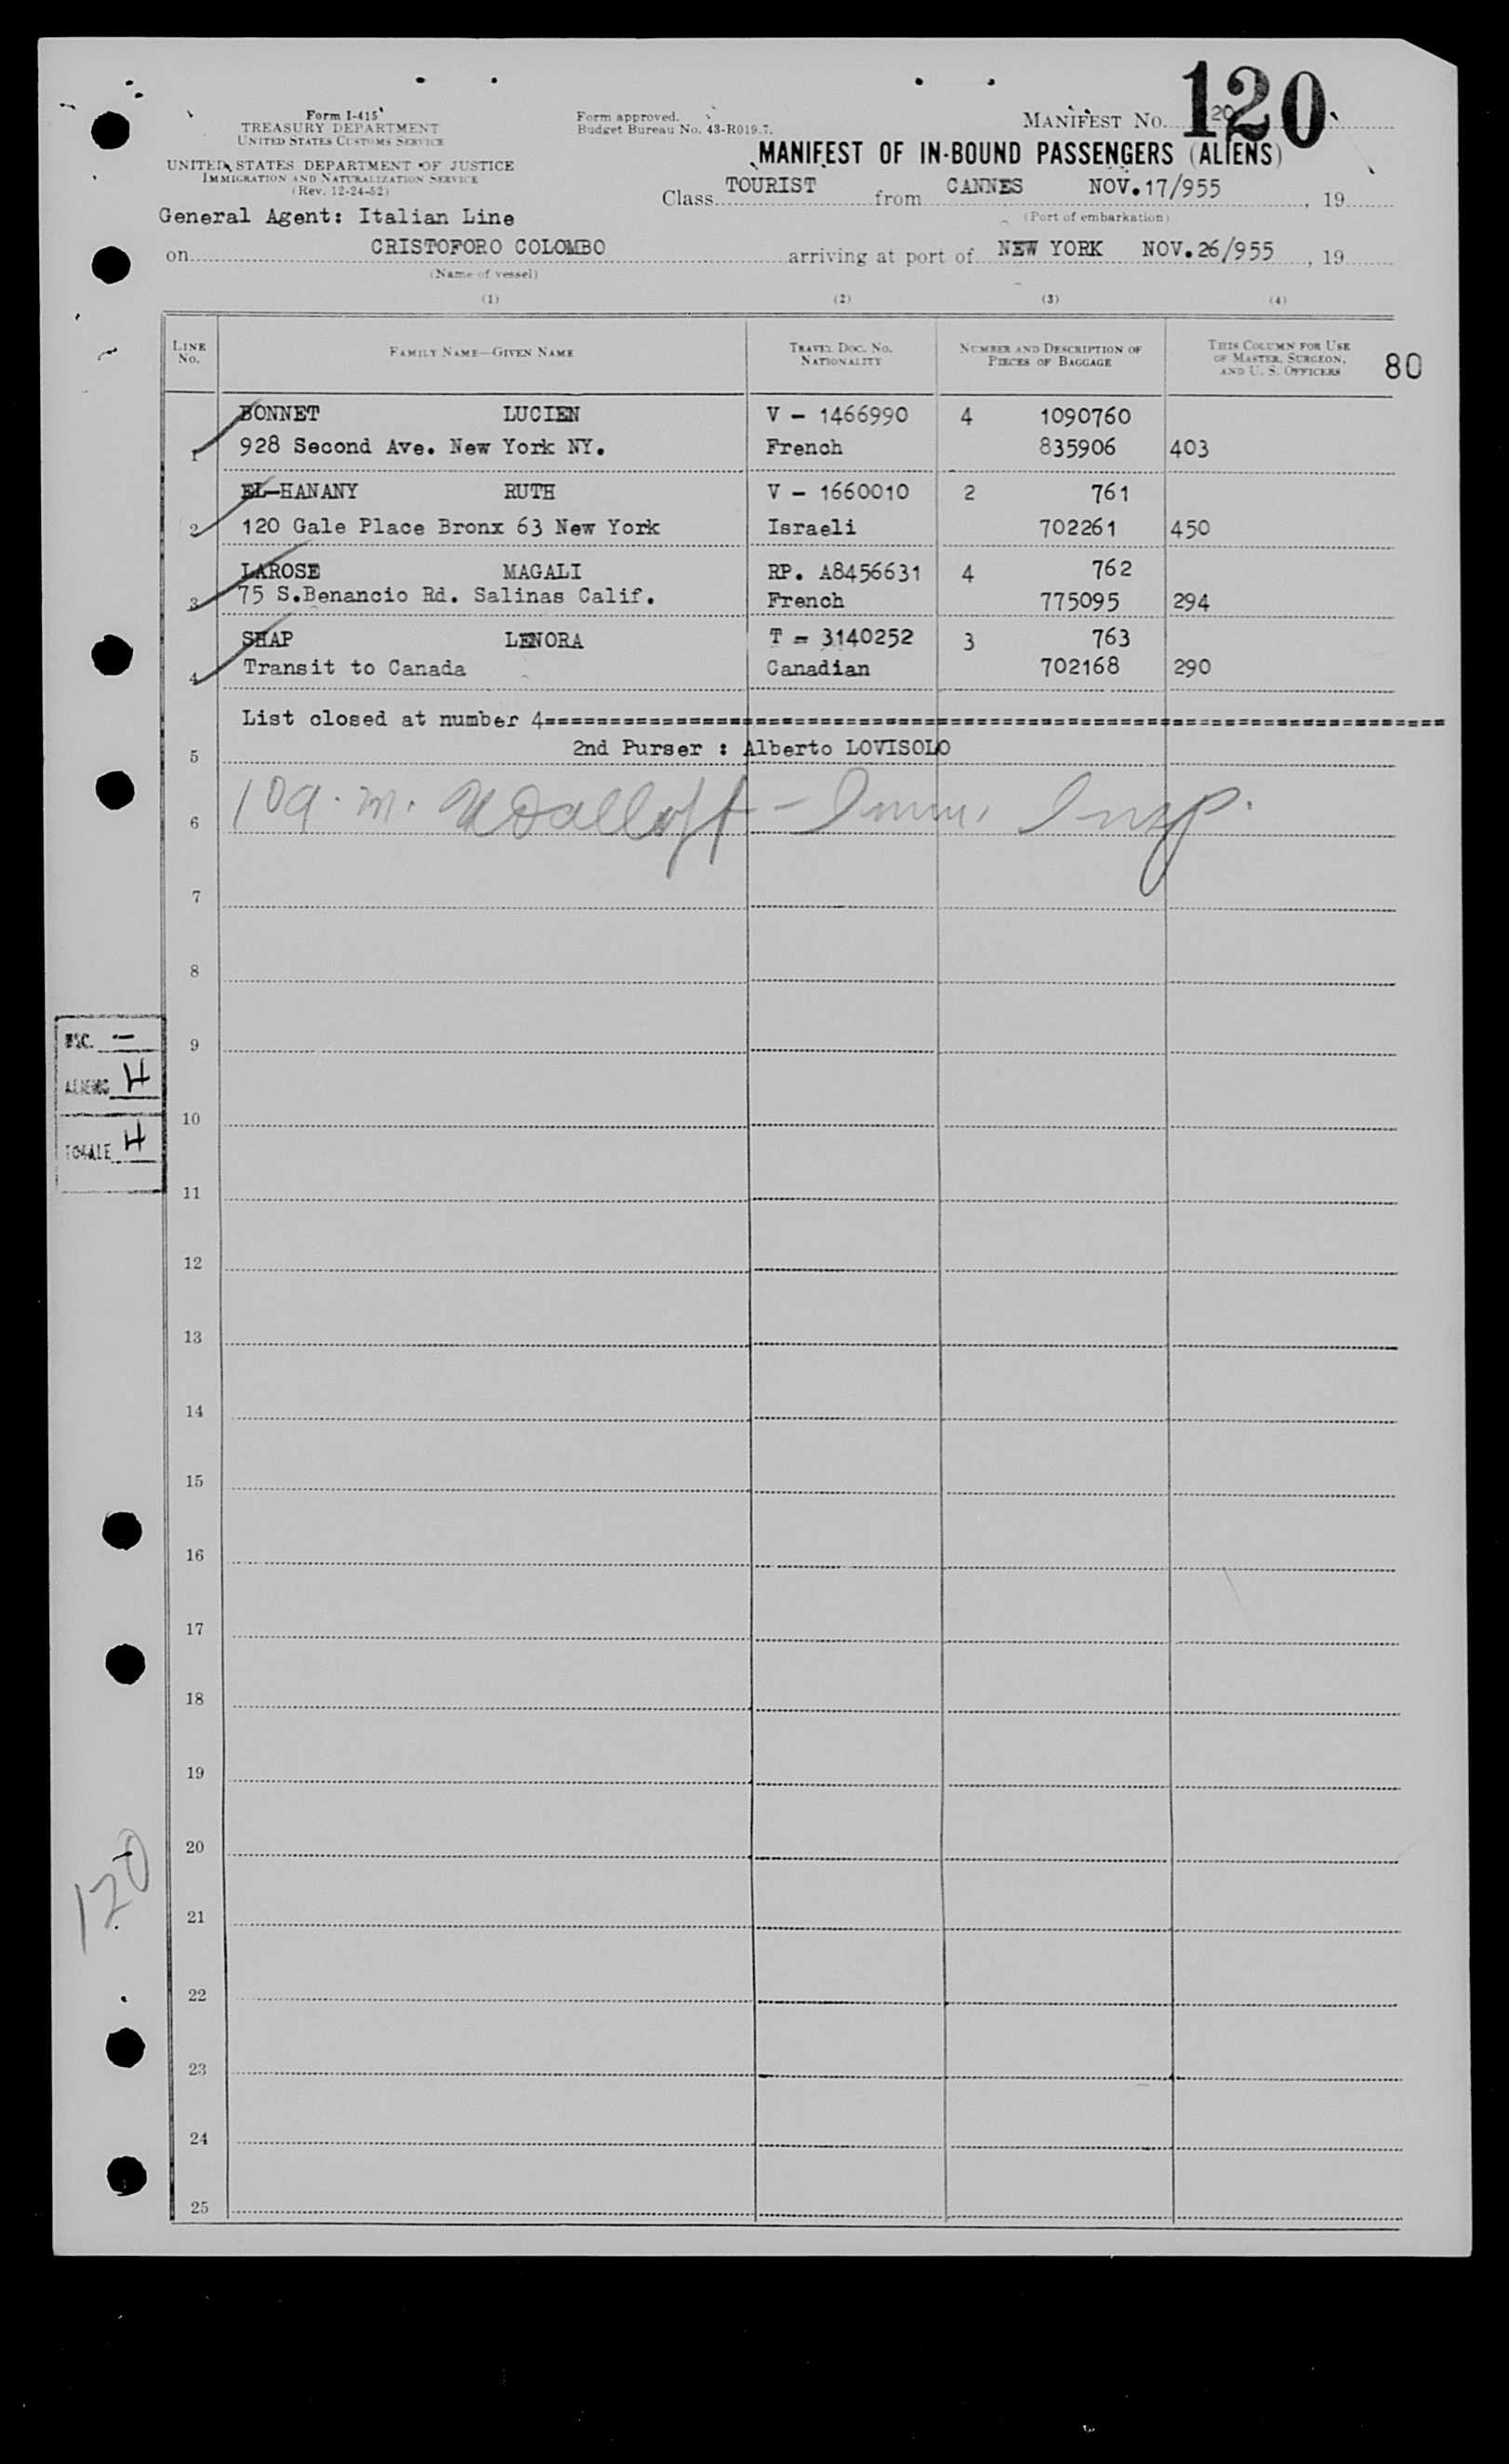 Form I-415
TREASURY DEPARTMENT
UNITED STATES CUSTOMS SERVICE
UNITED STATES DEPARTMENT OF JUSTICE
IMMIGRATION AND NATURALIZATION SERVICE
(Rev. 12-24-52)
Form approved.
Budget Bureau No. 43-R019.7.
MANIFEST No. 120
MANIFEST OF IN-BOUND PASSENGERS (ALIENS)
Class TOURIST from CANNES NOV.17/955, 19
(Port of embarkation)
General Agent: Italian Line
on CRISTOFORO COLOMBO arriving at port of NEW YORK NOV.26/955, 19
(Name of vessel)
(1) (2) (3) (4)
LINE No. FAMILY NAME—GIVEN NAME TRAVEL DOC. NO. NATIONALITY NUMBER AND DESCRIPTION OF PIECES OF BAGGAGE THIS COLUMN FOR USE OF MASTER, SURGEON, AND U. S. OFFICERS
80
BONNET LUCIEN V - 1466990 4 1090760
1 928 Second Ave. New York NY. French 835906 403
EL-HANANY RUTH V - 1660010 2 761
2 120 Gale Place Bronx 63 New York Israeli 702261 450
LAROSE MAGALI RP. A8456631 4 762
3 75 S.Benancio Rd. Salinas Calif. French 775095 294
SHAP LENORA T = 3140252 3 763
4 Transit to Canada Canadian 702168 290
List closed at number 4=====================================================================
5 2nd Purser : Alberto LOVISOLO
6 10 a.m. - Imm. Insp.
7
8
9
ALIENS 4
10
TOTALE 4
11
12
13
14
15
16
17
18
19
20
120
21
22
23
24
25